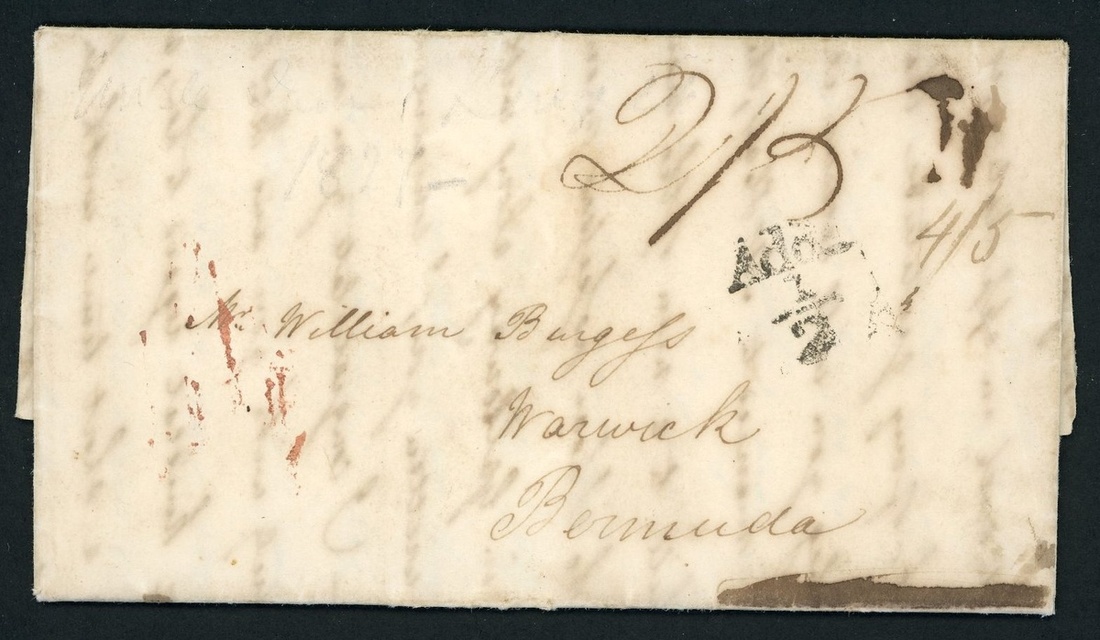 2/3
4/5
Addl
1/2
Mr. William Burgess
Warwick
Bermuda